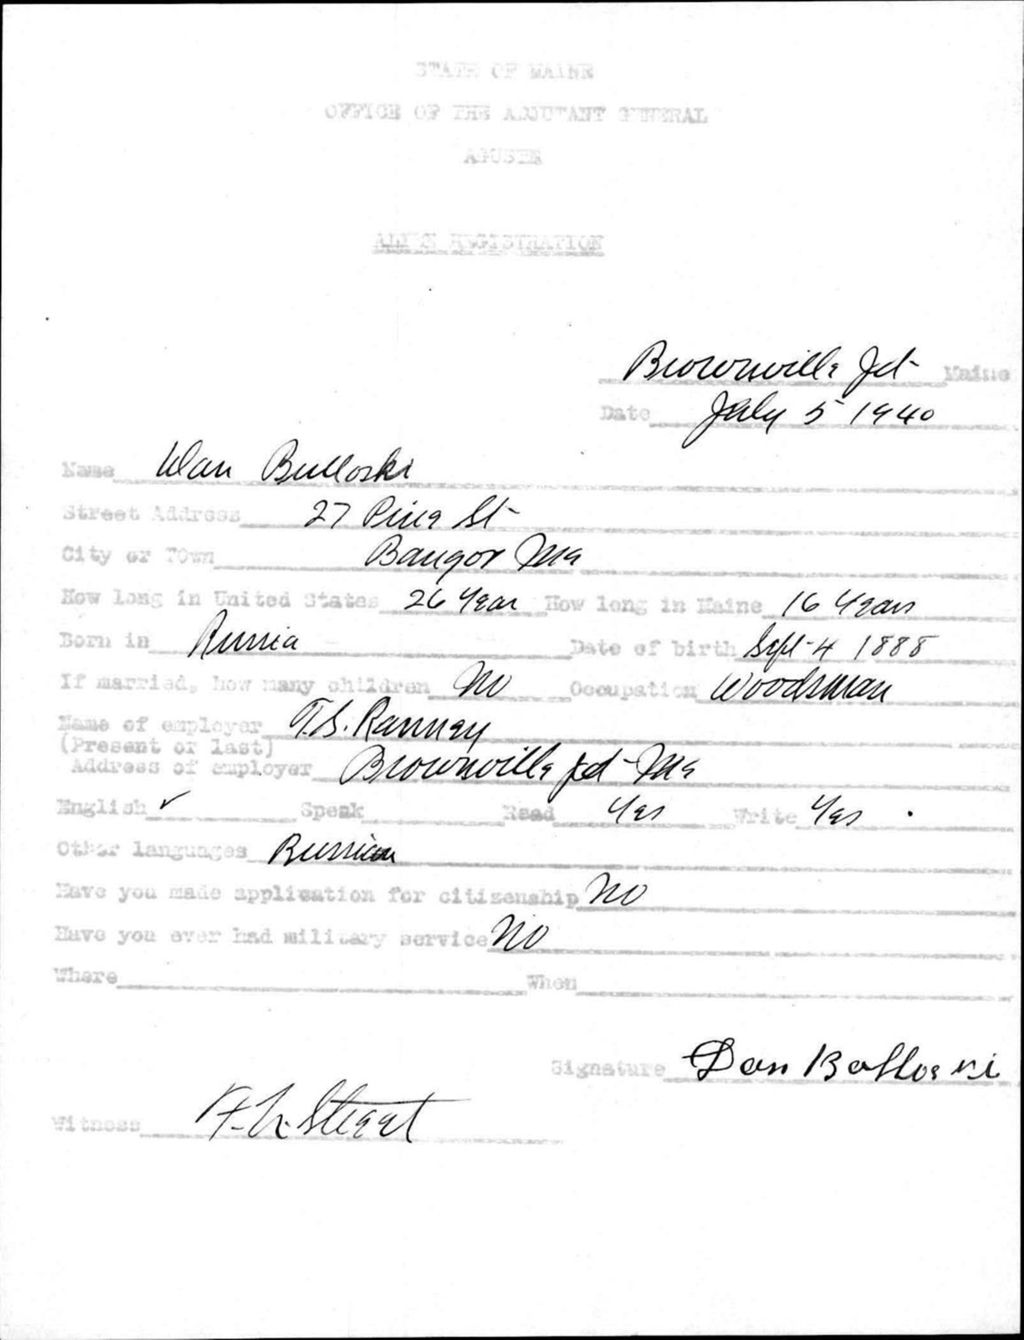 STATE OF MAINE
OFFICE OF THE ADJUTANT GENERAL
AUGUSTA
ALIEN REGISTRATION
Brownville Jct Maine
Date July 5 1940
Name Bulloski
Street Address 27 Pine St
City or Town Bangor Me
How long in United States 26 Year How long in Maine 16 Years
Born in Russia Date of birth Sept 4 1888
If married, how many children No Occupation Woodsman
Name of employer T.S. Ranney
(Present or last)
Address of employer Brownville Jct Me
English ✓ Speak Read Yes Write Yes
Other languages Russian
Have you made application for citizenship No
Have you ever had military service No
Where When
Signature Dan
Witness